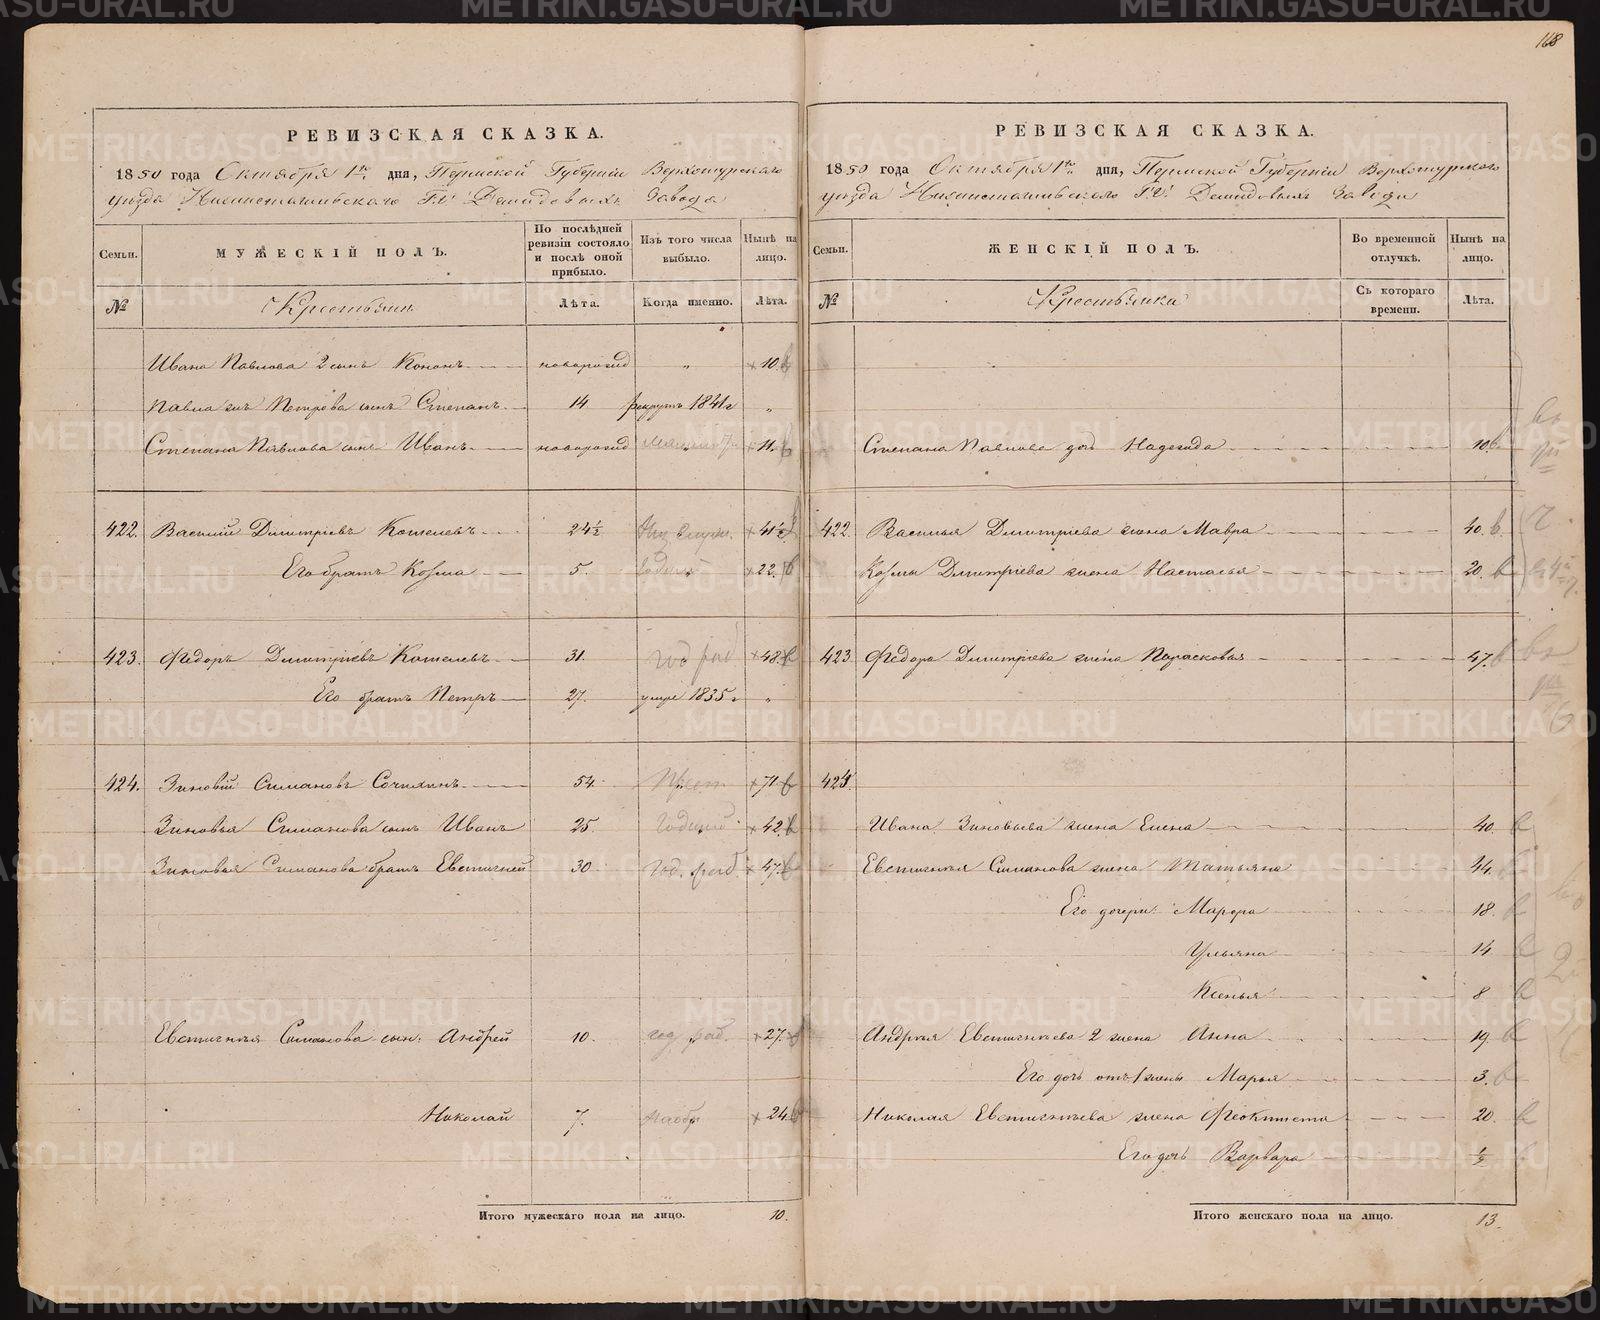 168
РЕВИЗСКАЯ СКАЗКА.
1850 года Октября 1го дня, Пермской Губерніи Верхотурскаго
уезда Нижнетагильского Гг. Демидовыхъ Завода
Семьи. МУЖЕСКІЙ ПОЛЪ. По послѣдней ревизіи состояло и послѣ оной прибыло. Изъ того числа выбыло. Нынѣ на лицо.
№ Крестьяне Лѣта. Когда именно. Лѣта.
Ивана Павлова 2 сынъ Кононъ новорожд " 10
Павла же Петрова сынъ Степанъ 14 рекрутъ 1841 г "
Степана Павлова сынъ Иванъ новорожд 11
422. Василий Дмитріевъ Кошелевъ 24½ 41½
Его братъ Козма 5. 22.
423. Федоръ Дмитріевъ Кошелевъ 31. год раб 48
Его братъ Петръ 27. умре 1835 г "
424. Зиновій Симановъ Сочилинъ 54. 71
Зиновья Симанова сынъ Иванъ 25. 42
Зиновья Симанова братъ Евстигней 30 год. раб. 47.
Евстигнѣя Симанова сын. Андрей 10. год раб. 27.
Николай 7. 24.
Итого мужескаго пола на лицо. 10.
РЕВИЗСКАЯ СКАЗКА.
1850 года Октября 1го дня, Пермской Губерніи Верхотурского
уезда Нижнетагильского Гг. Демидовыхъ Завода
Семьи. ЖЕНСКІЙ ПОЛЪ. Во временной отлучкѣ. Нынѣ на лицо.
№ Крестьянки Съ котораго времени. Лѣта.
Степана Павлова дочь Надежда 10
422. Василья Дмитріева жена Мавра 40.
Козмы Дмитріева жена Настасья 20.
423 Федора Дмитріева жена Парасковья 47.
424.
Ивана Зиновьева жена Елена 40.
Евстигнѣя Симанова жена Татьяна 44.
Его дочери Марфа 18.
Ульяна 14
Ксенья 8
Андрѣя Евстигнѣева 2 жена Анна 19
Его дочь отъ 1 жены Марья 3.
Николая Евстигнѣева жена Феоктиста 20
Его дочь Варвара ½
Итого женскаго пола на лицо. 13.
METRIKI.GASO-URAL.RU